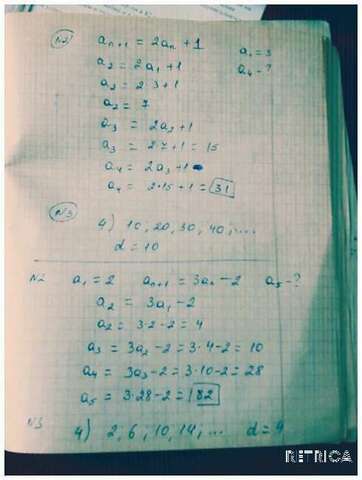 N2 aₙ₊₁ = 2aₙ + 1 a₁ = 3
a₂ = 2a₁ + 1 a₄ - ?
a₂ = 2·3 + 1
a₂ = 7
a₃ = 2a₂ + 1
a₃ = 2·7 + 1 = 15
a₄ = 2a₃ + 1
a₄ = 2·15 + 1 = 31
N3 4) 10; 20; 30; 40; ...
d = 10
N2 a₁ = 2 aₙ₊₁ = 3aₙ - 2 a₅ - ?
a₂ = 3a₁ - 2
a₂ = 3·2 - 2 = 4
a₃ = 3a₂ - 2 = 3·4 - 2 = 10
a₄ = 3a₃ - 2 = 3·10 - 2 = 28
a₅ = 3·28 - 2 = 82
N3 4) 2, 6, 10, 14; ... d = 4
RETRICA